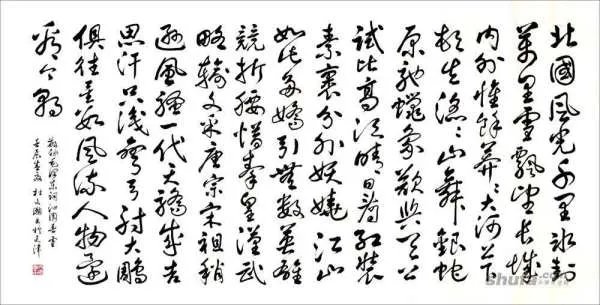 北國風光千里冰封
萬里雪飄望長城
内外惟餘莽〻大河上下
頓失滔〻山舞銀蛇
原馳蠟象欲與天公
試比高須晴日看紅裝
素裹分外妖嬈江山
如此多嬌引無數英雄
競折腰惜秦皇漢武
略輸文采唐宗宋祖稍
遜風騷一代天驕成吉
思汗只識彎弓射大鵰
俱往矣數風流人物還
看今朝
敬錄毛澤東詞沁園春雪
壬辰 書於天津